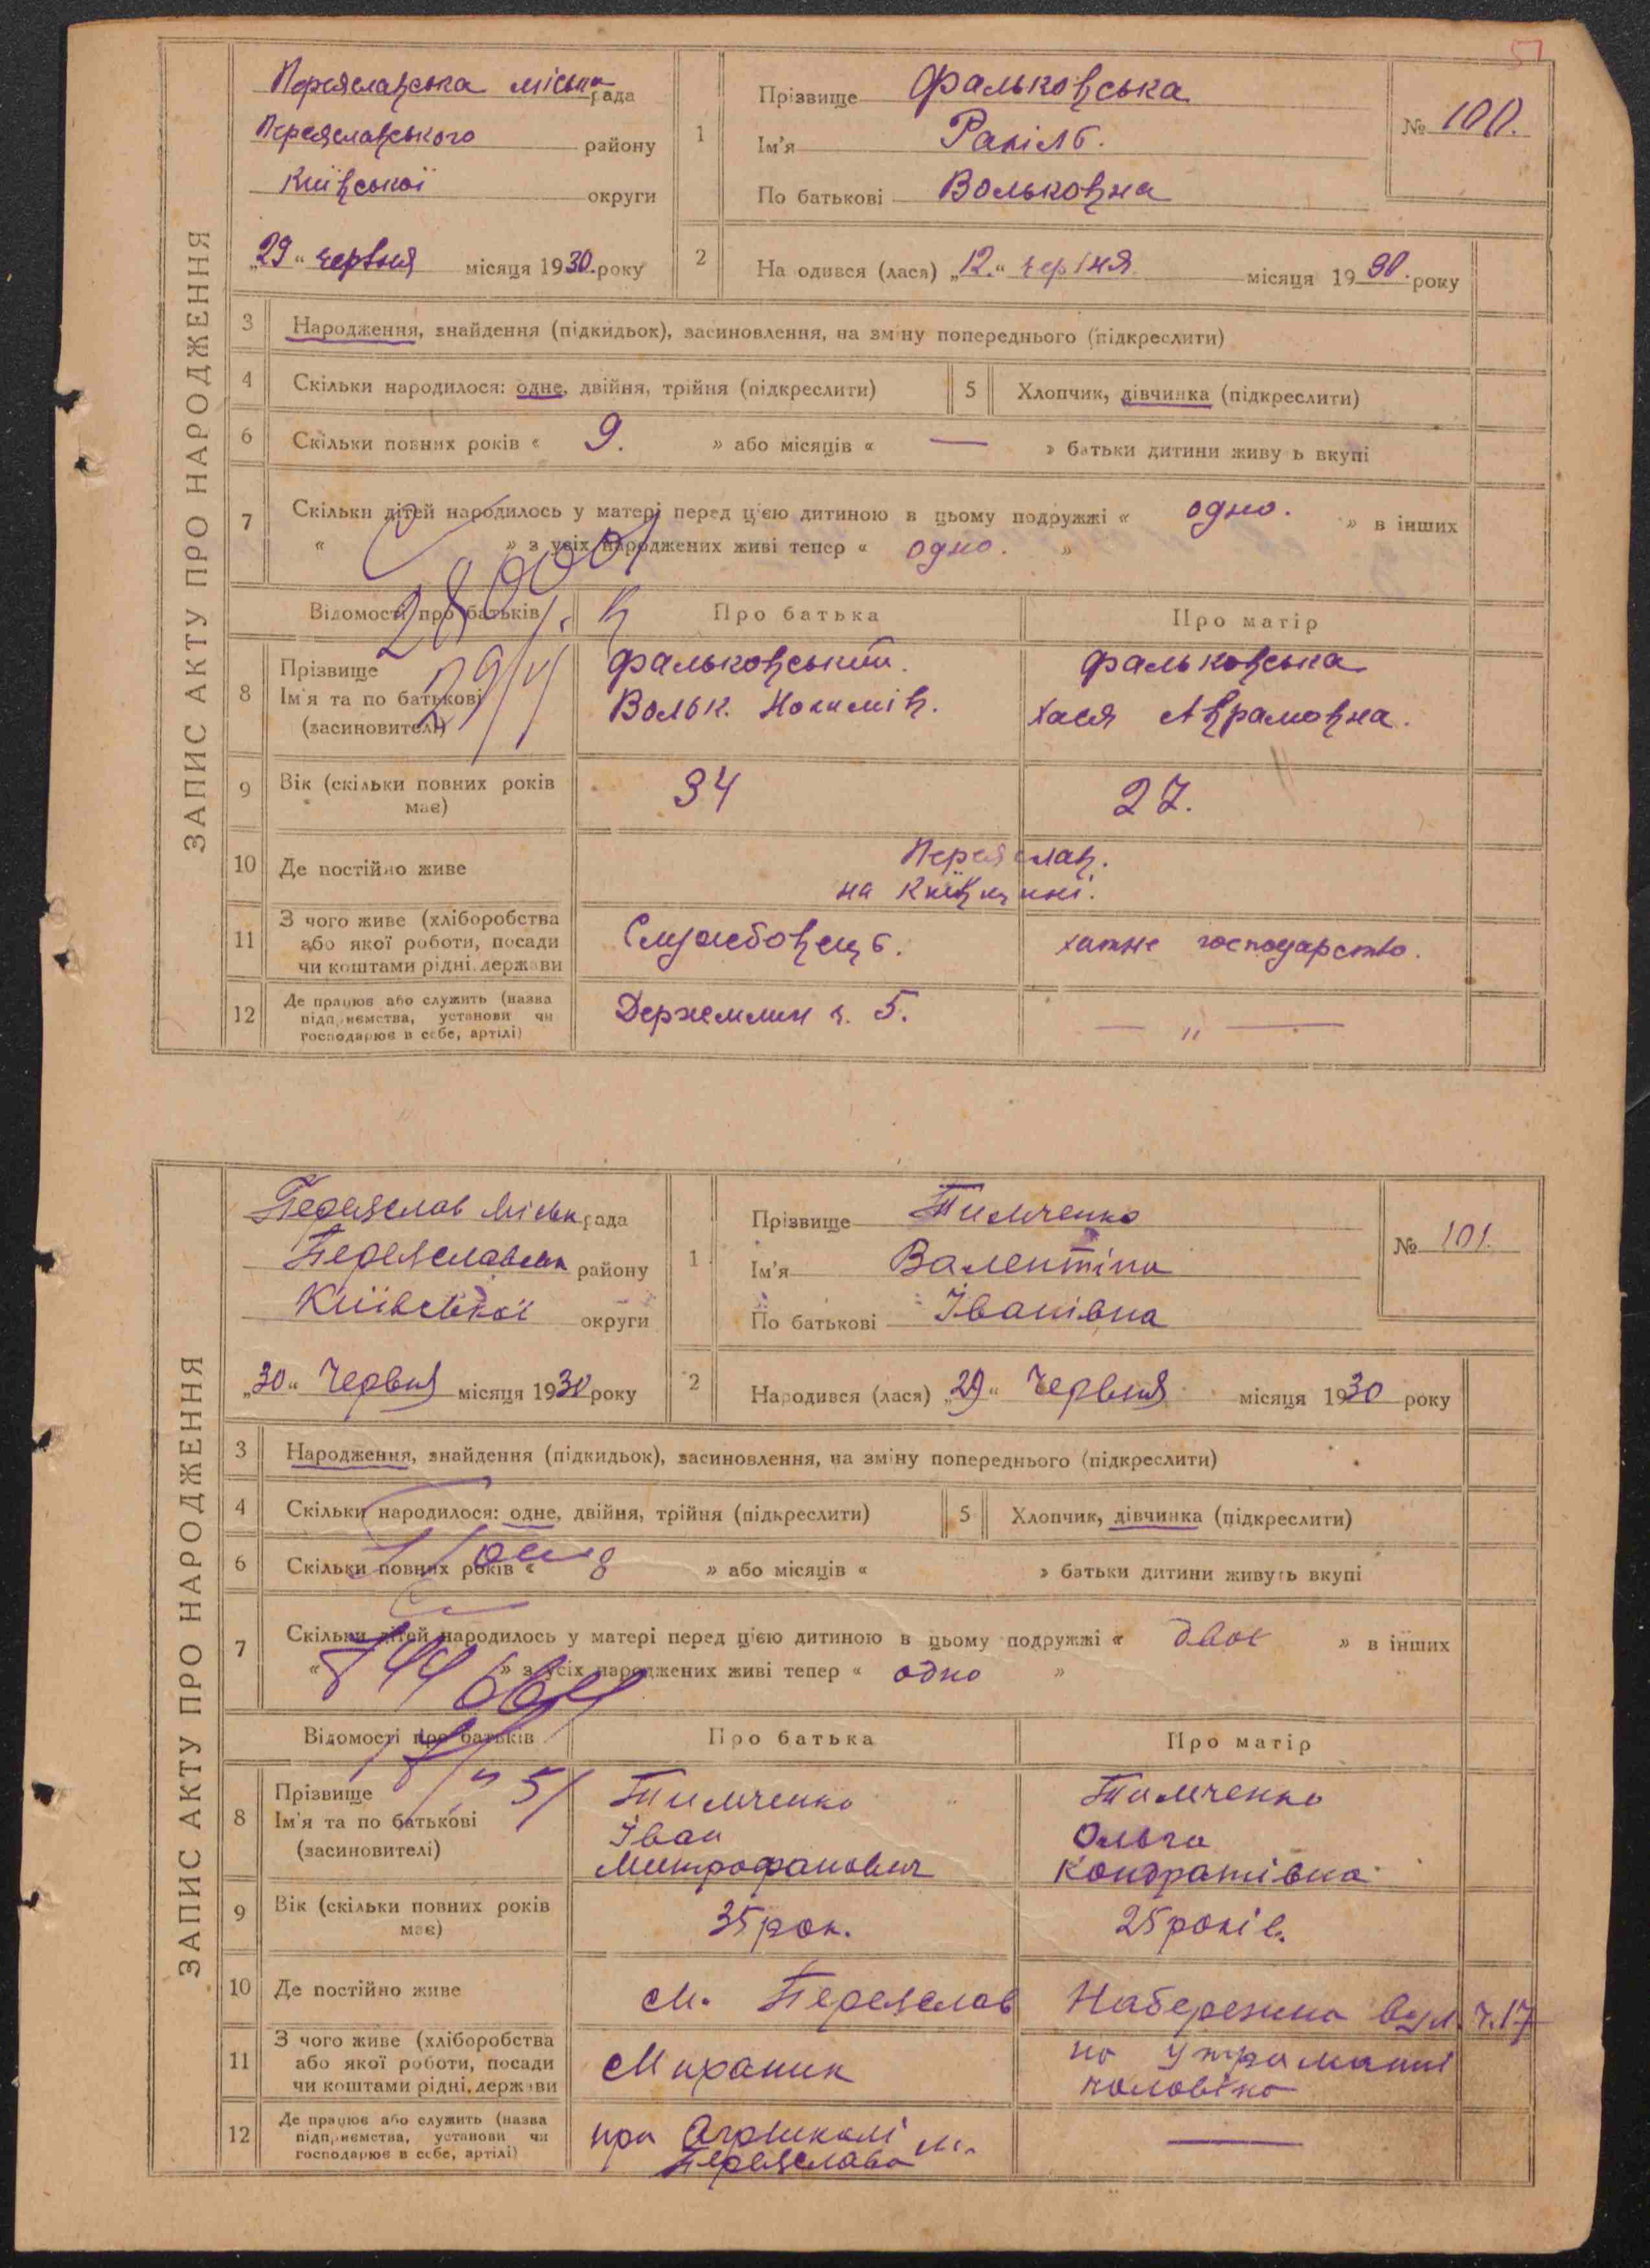 51
ЗАПИС АКТУ ПРО НАРОДЖЕННЯ
Переяславська міська рада
Переяславського району
Київської округи
„29“ червня місяця 1930 року
1
Прізвище Фальковська
Ім'я Рахіль.
По батькові Вольковна
№ 100.
2
На одився (лася) „12.“ червня місяця 1930. року
3 Народження, знайдення (підкидьок), засиновлення, на зміну попереднього (підкреслити)
4 Скільки народилося: одне, двійня, трійня (підкреслити) 5 Хлопчик, дівчинка (підкреслити)
6 Скільки повних років « 9. » або місяців « — » батьки дитини живу ь вкупі
7 Скільки дітей народилось у матері перед цією дитиною в цьому подружжі « одно. » в інших
« » з усіх народжених живі тепер « одно. »
Відомості про батьків Про батька Про матір
8 Прізвище Ім'я та по батькові (засновителі)
Фальковський. Фальковська
Вольк. Нохимів. Хася Аврамовна.
9 Вік (скільки повних років має) 34 27.
10 Де постійно живе Переяслав.
на Київщині.
11 З чого живе (хліборобства або якої роботи, посади чи коштами рідні, держави Службовець. хатнє господарство.
12 Де працює або служить (назва підприємства, установи чи господарює в себе, артілі) Держмлин ч. 5. — „ —
ЗАПИС АКТУ ПРО НАРОДЖЕННЯ
Переяслав міськ рада
Переяславськ району
Київської округи
„30“ Червня місяця 1930 року
1
Прізвище Тимченко
Ім'я Валентіна
По батькові Іванівна
№ 101.
2
Народився (лася) „29“ Червня місяця 1930 року
3 Народження, знайдення (підкидьок), засиновлення, на зміну попереднього (підкреслити)
4 Скільки народилося: одне, двійня, трійня (підкреслити) 5 Хлопчик, дівчинка (підкреслити)
6 Скільки повних років « 8 » або місяців « » батьки дитини живуть вкупі
7 Скільки дітей народилось у матері перед цією дитиною в цьому подружжі « двоє » в інших
« » з усіх народжених живі тепер « одно »
Відомості про батьків Про батька Про матір
8 Прізвище Ім'я та по батькові (засиновителі)
Тимченко Тимченко
Іван Ольга
Митрофанович Кондратівна
9 Вік (скільки повних років має) 35 рок. 25 років.
10 Де постійно живе м. Переяслав Набережна вул. ч. 17
11 З чого живе (хліборобства або якої роботи, посади чи коштами рідні, держави Механик на утриманні
чоловіка
12 Де працює або служить (назва підприємства, установи чи господарює в себе, артілі) при Агрошколі м.
Переяслава —